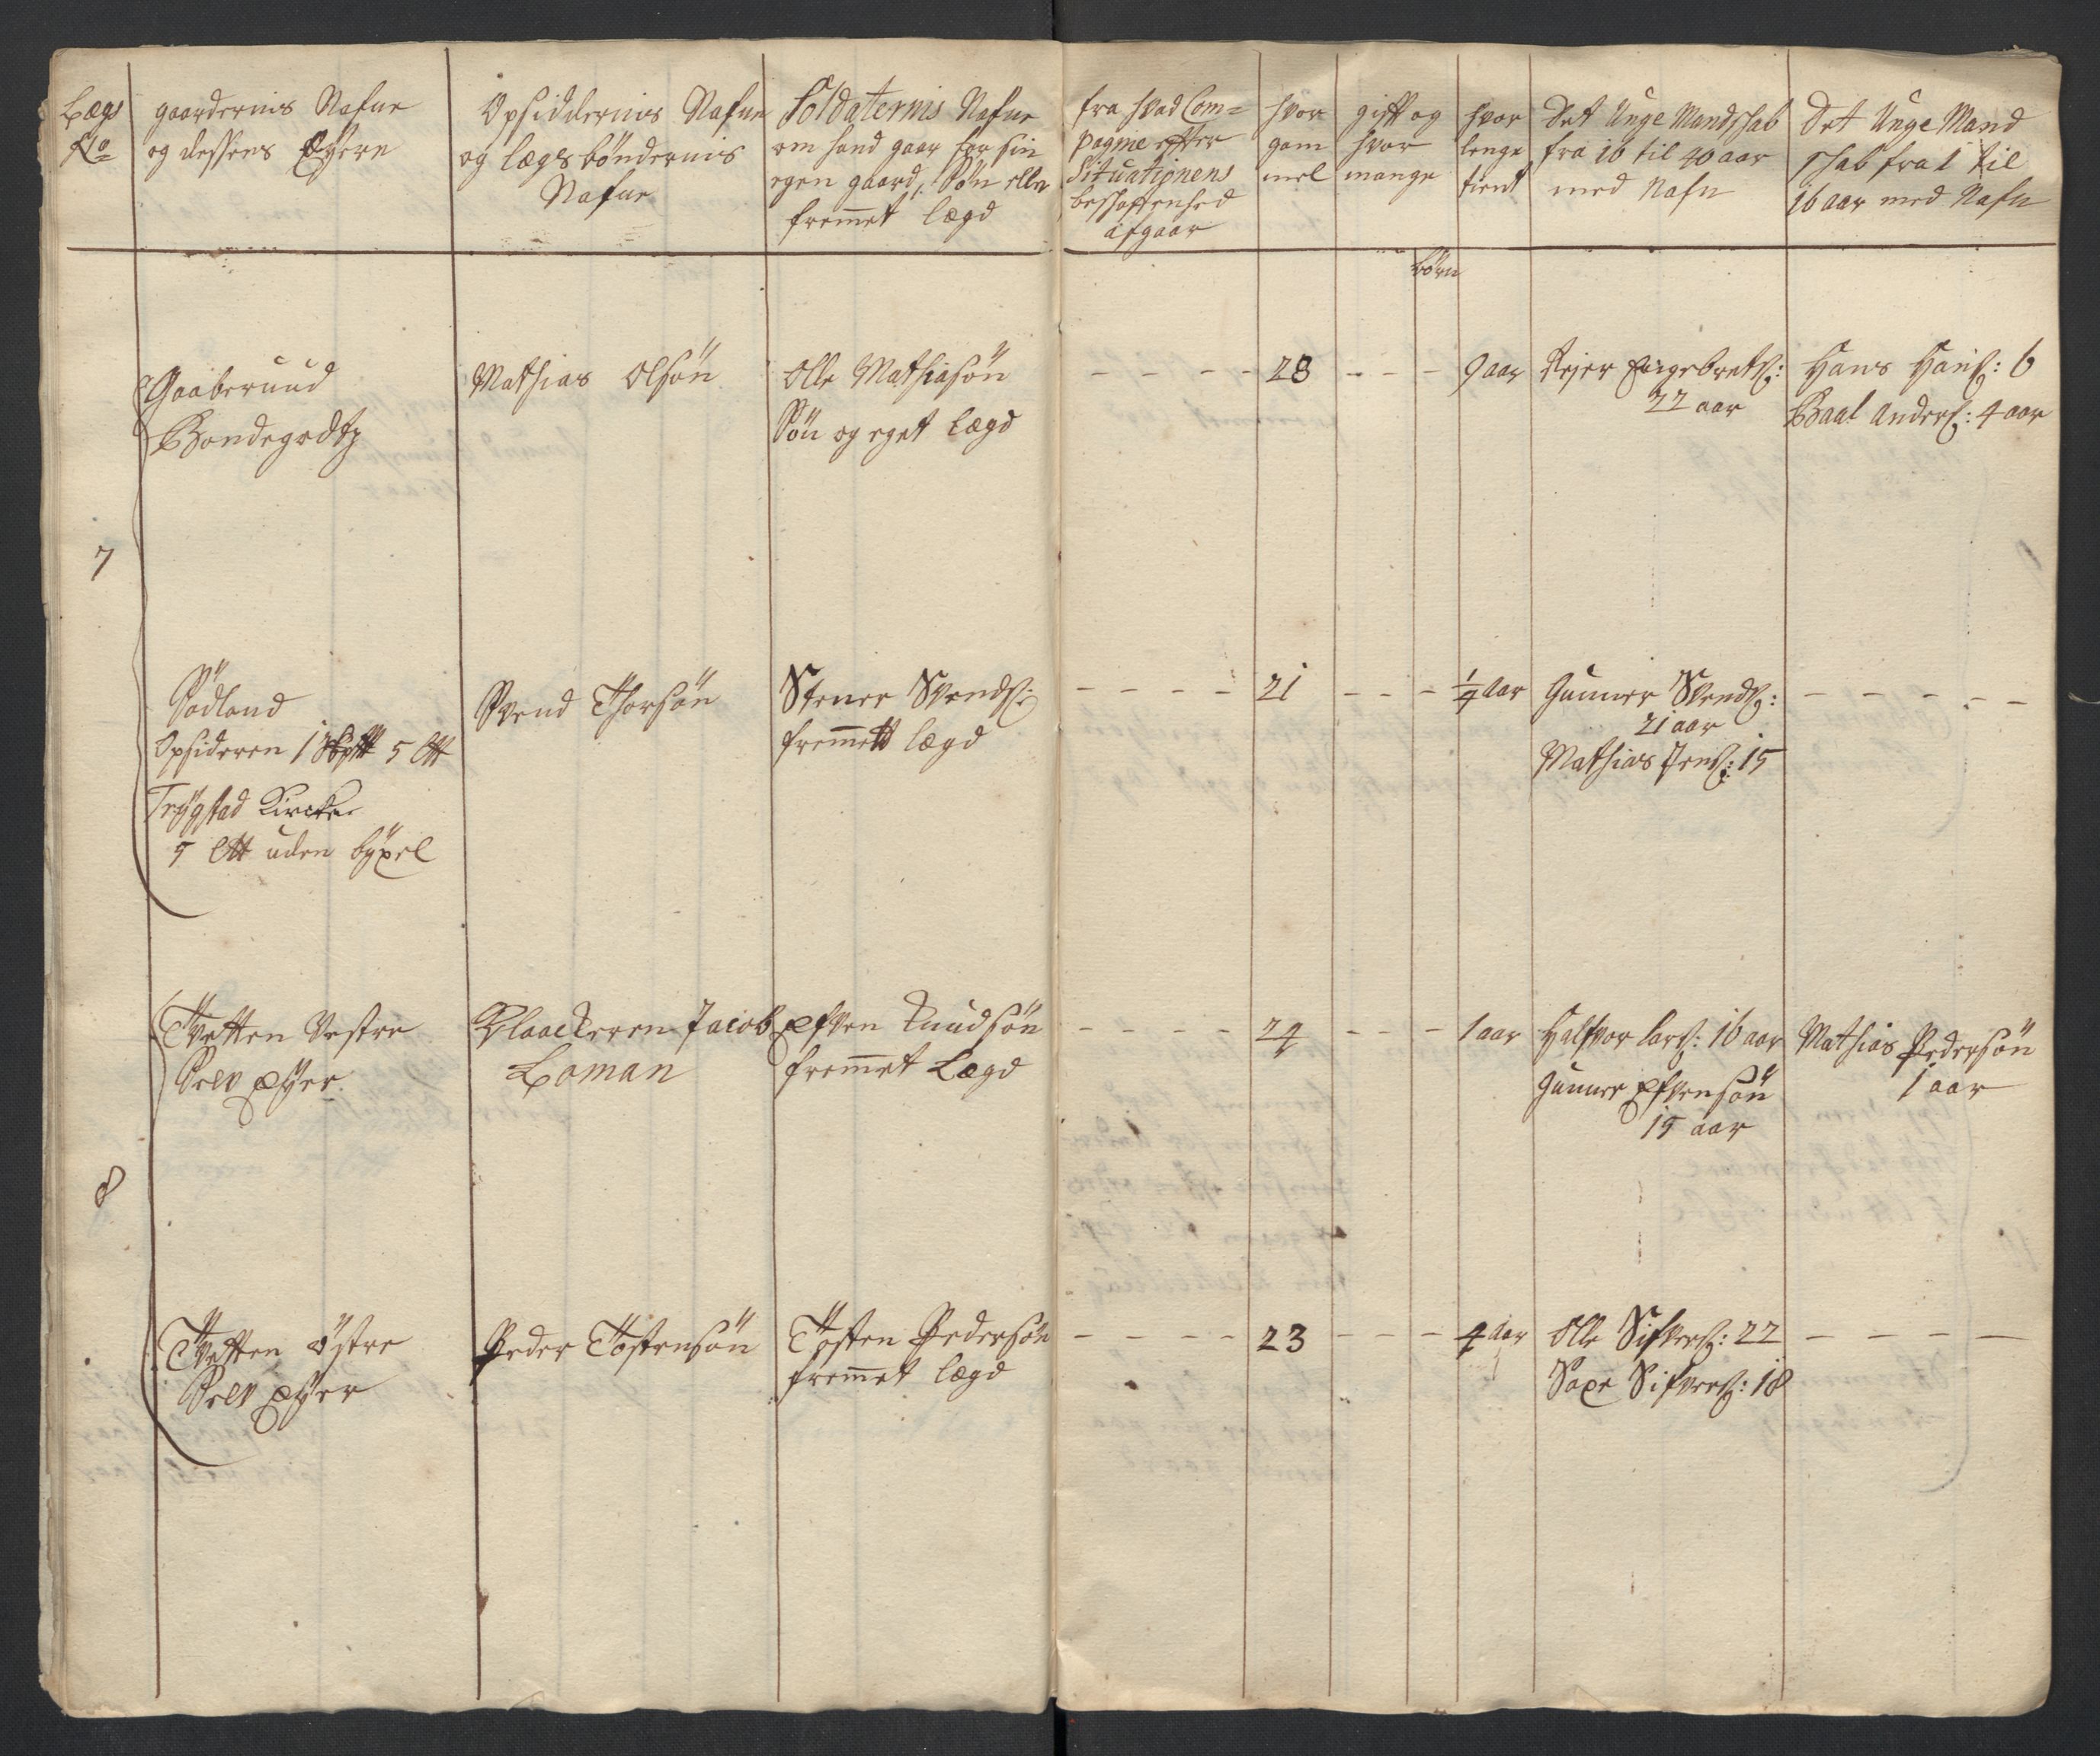 Lægs
No
gaardernis Nafne
og dessens Eÿere
Opsiddernis Nafne
og lægsbøndernis
Nafne
Soldaternis Nafne
om hand gaar for sin
egen gaard, Søn eller
fremmet lægd
fra hvad Com=
pagnie efter
Situationens
beschaffenhed
afgaar
hvor
gam
mel
gift og
hvor
mange
børn
hvor
lenge
tient
Det Unge Mandschab
fra 16 til 40 aar
med Nafn
Det Unge Mand
schab fra 1 til
16 aar med Nafn
7
Gaaberuud
Bondegodtz
Mathias Olsøn
Olle Mathiasøn
Søn og eget lægd
- - - - 28 - - - 9 aar
Rejer Engebretß:
22 aar
Hans Hanß: 6
Paal Anderß: 4 aar
Sødland
Opsideren 1 5 Ltt
Trÿgstad Kircke
5 Ltt uden bÿxel
Svend Thorsøn
Stener Svendß:
fremmett lægd
- - - - 21 - - - 1/4 aar
Gunner Svendß:
21 aar
Mathias Jenß: 15
- - - - -
8
Tvetten Vestre
Selv Eÿer
Klaackeren Jacob
Loman
Efven Knudsøn
fremmet Lægd
- - - - 24 - - - 1 aar
Halfvor Larß: 16 aar
Gunner Efvensøn
15 aar
Mathias Pedersøn
1 aar
Tvetten østre
Selv Eÿer
Peder Tostensøn
Tosten Pedersøn
fremmet lægd
- - - - 23 - - - 4 aar
Olle Sifverß: 22
Saxe Sifverß: 18
- - - -